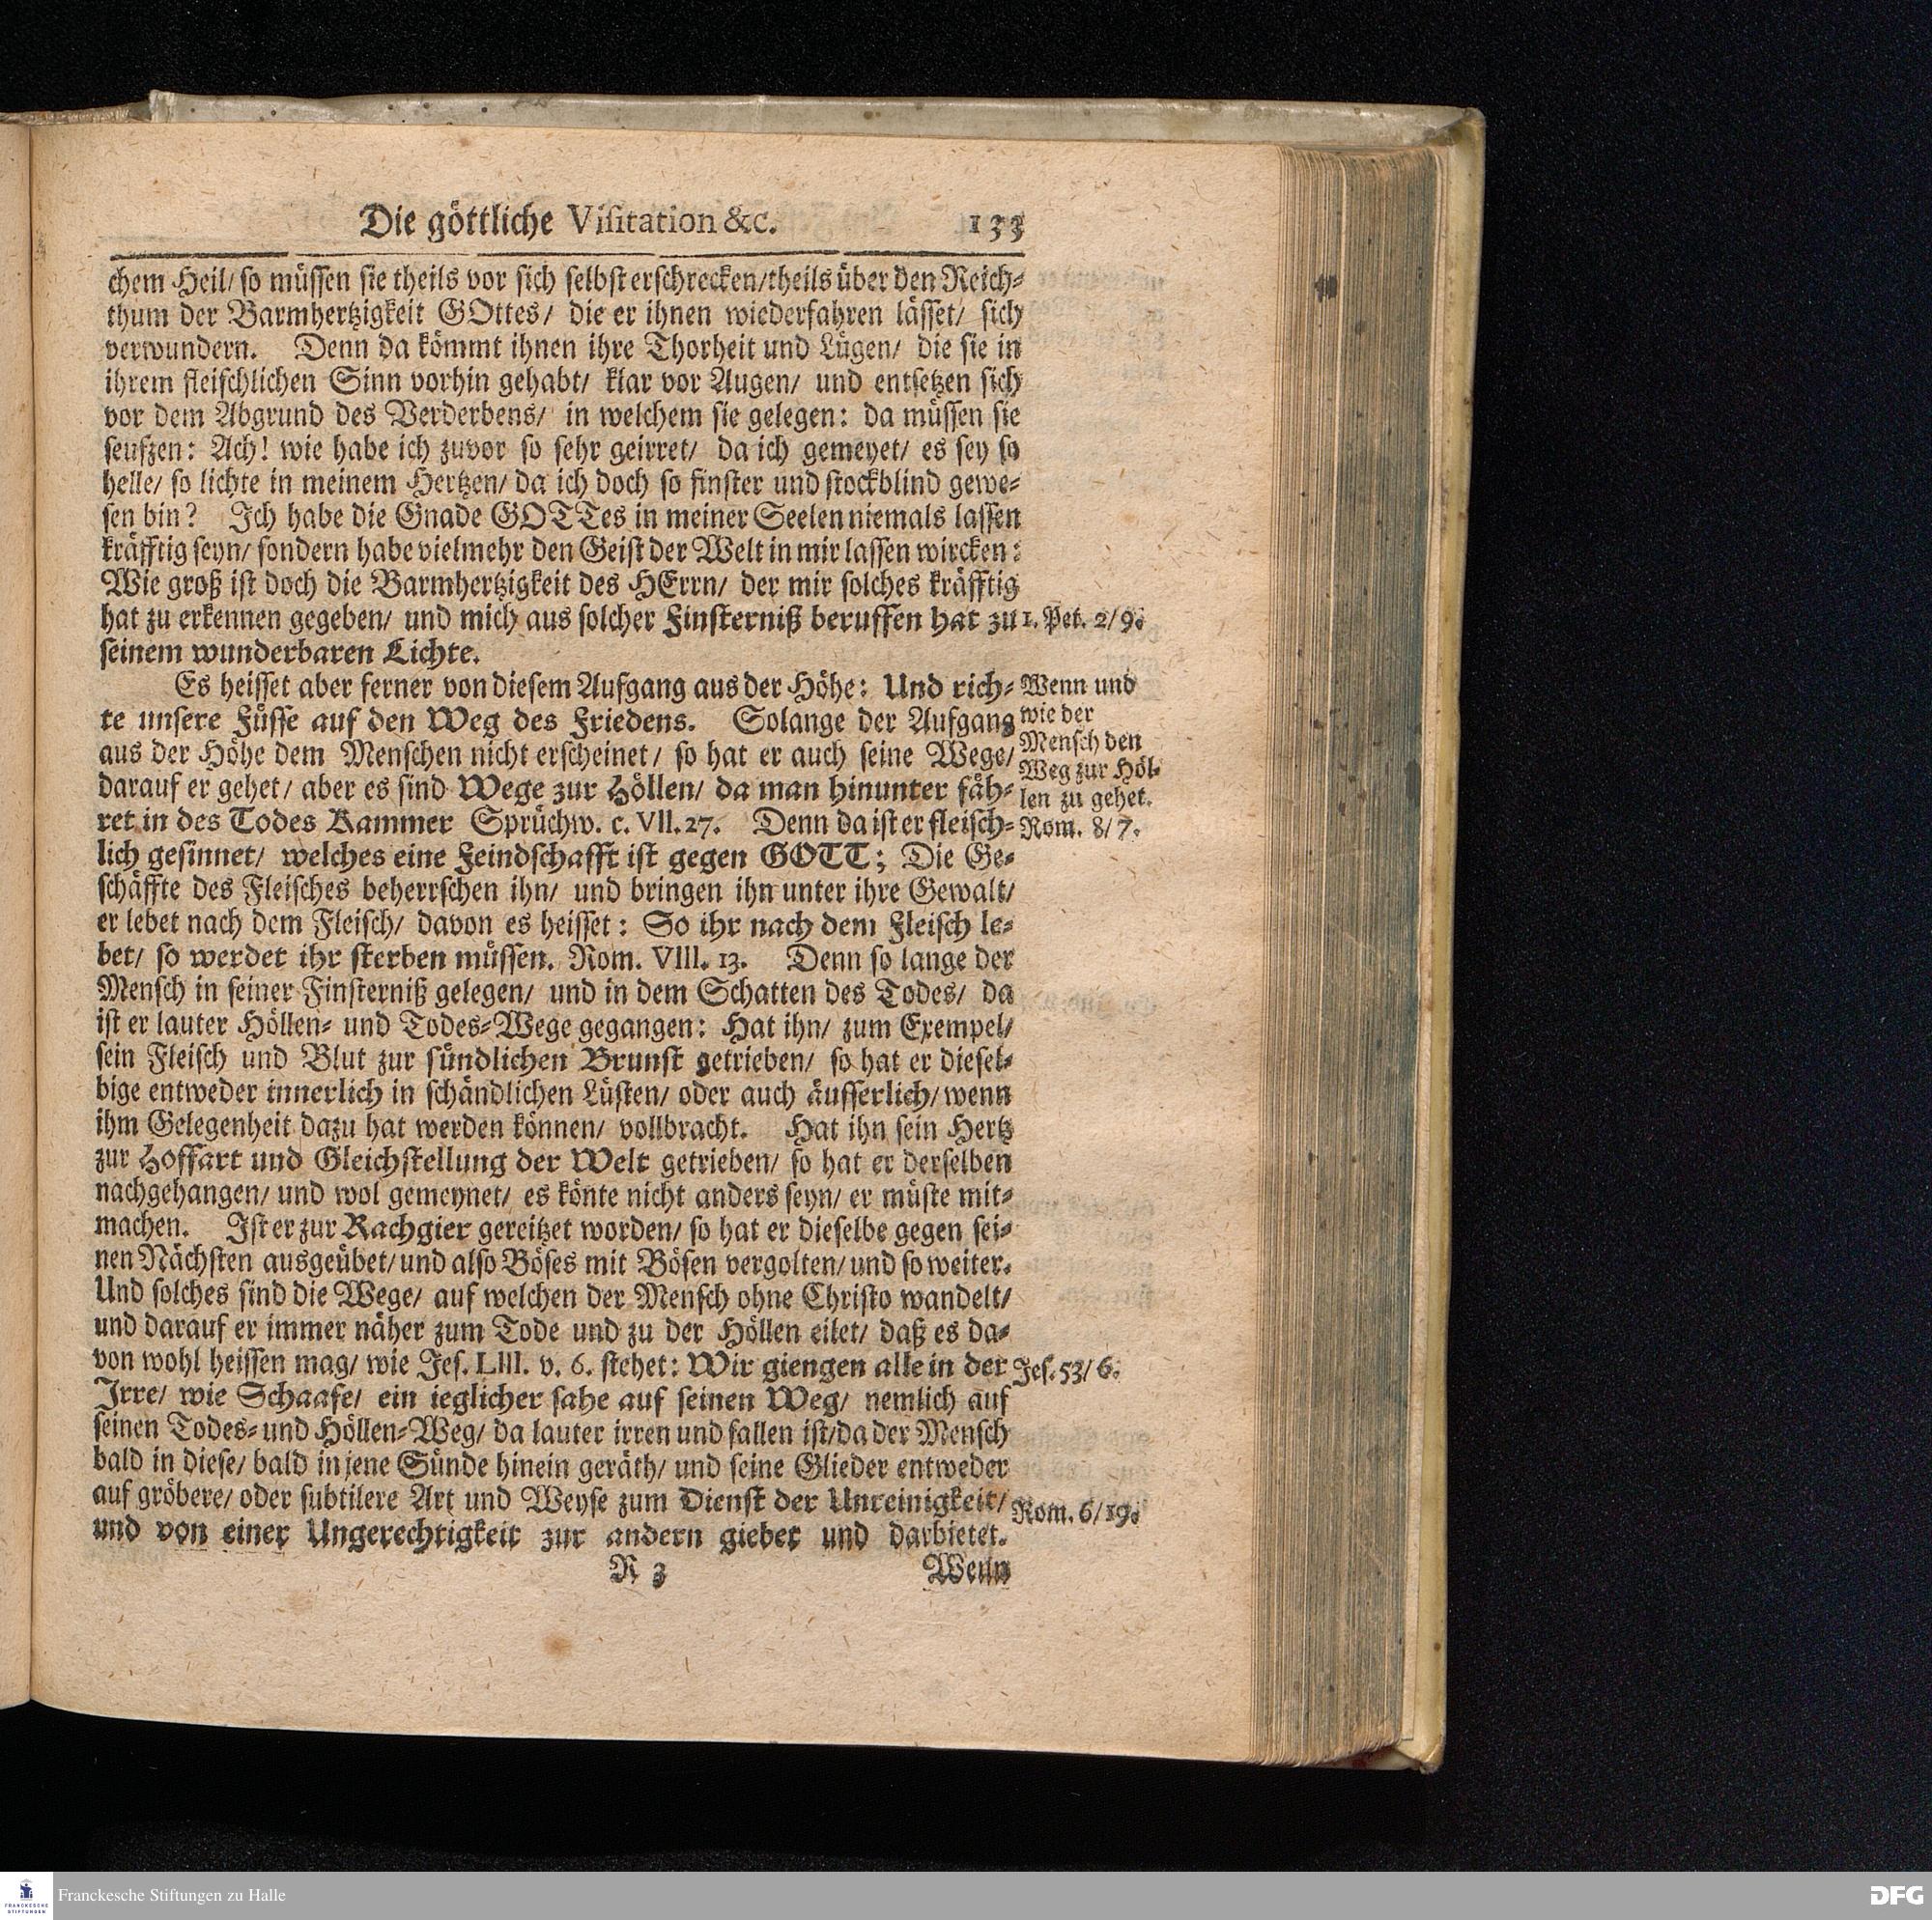 Die göttliche Viſitation &c. 133
chem Heil/ ſo müſſen ſie theils vor ſich ſelbſt erſchrecken/theils über den Reich⸗
thum der Barmhertzigkeit GOttes/ die er ihnen wiederfahren läſſet/ ſich
verwundern. Denn da kömmt ihnen ihre Thorheit und Lügen/ die ſie in
ihrem fleiſchlichen Sinn vorhin gehabt/ klar vor Augen/ und entſetzen ſich
vor dem Abgrund des Verderbens/ in welchem ſie gelegen: da müſſen ſie
ſeufzen: Ach! wie habe ich zuvor ſo ſehr geirret/ da ich gemeyet/ es ſey ſo
helle/ ſo lichte in meinem Hertzen/ da ich doch ſo finſter und ſtockblind gewe⸗
ſen bin? Ich habe die Gnade GOTTes in meiner Seelen niemals laſſen
kräfftig ſeyn/ ſondern habe vielmehr den Geiſt der Welt in mir laſſen wircken:
Wie groß iſt doch die Barmhertzigkeit des HErrn/ der mir ſolches kräfftig
hat zu erkennen gegeben/ und mich aus ſolcher Finſterniß beruffen hat zu
1. Pet. 2/9.
ſeinem wunderbaren Lichte.
Es heiſſet aber ferner von dieſem Aufgang aus der Höhe: Und rich⸗
te unſere Füſſe auf den Weg des Friedens. Solange der Aufgang
aus der Höhe dem Menſchen nicht erſcheinet/ ſo hat er auch ſeine Wege/
darauf er gehet/ aber es ſind Wege zur Höllen/ da man hinunter fäh⸗
ret in des Todes Kammer Sprüchw. c. VII. 27. Denn da iſt er fleiſch⸗
Wenn und
wie der
Menſch den
Weg zur Höl⸗
len zu gehet.
Rom. 8/7.
lich geſinnet/ welches eine Feindſchafft iſt gegen GOTT; Die Ge⸗
ſchäffte des Fleiſches beherrſchen ihn/ und bringen ihn unter ihre Gewalt/
er lebet nach dem Fleiſch/ davon es heiſſet: So ihr nach dem Fleiſch le⸗
bet/ ſo werdet ihr ſterben müſſen. Rom. VIII. 13. Denn ſo lange der
Menſch in ſeiner Finſterniß gelegen/ und in dem Schatten des Todes/ da
iſt er lauter Höllen⸗ und Todes⸗Wege gegangen: Hat ihn/ zum Exempel/
ſein Fleiſch und Blut zur ſündlichen Brunſt getrieben/ ſo hat er dieſel⸗
bige entweder innerlich in ſchändlichen Lüſten/ oder auch äuſſerlich/ wenn
ihm Gelegenheit dazu hat werden können/ vollbracht. Hat ihn ſein Hertz
zur Hoffart und Gleichſtellung der Welt getrieben/ ſo hat er derſelben
nachgehangen/ und wol gemeynet/ es könte nicht anders ſeyn/ er müſte mit⸗
machen. Iſt er zur Rachgier gereitzet worden/ ſo hat er dieſelbe gegen ſei⸗
nen Nächſten ausgeübet/ und alſo Böſes mit Böſen vergolten/ und ſo weiter.
Und ſolches ſind die Wege/ auf welchen der Menſch ohne Chriſto wandelt/
und darauf er immer näher zum Tode und zu der Höllen eilet/ daß es da⸗
von wohl heiſſen mag/ wie Jeſ. LIII. v. 6. ſtehet: Wir giengen alle in der
Jeſ. 53/6.
Irre/ wie Schaafe/ ein ieglicher ſahe auf ſeinen Weg/ nemlich auf
ſeinen Todes⸗ und Höllen⸗Weg/ da lauter irren und fallen iſt/da der Menſch
bald in dieſe/ bald in jene Sünde hinein geräth/ und ſeine Glieder entweder
auf gröbere/ oder ſubtilere Art und Weyſe zum Dienſt der Unreinigkeit/
Rom. 6/19.
und von einer Ungerechtigkeit zur andern giebet und darbietet.
R 3 Wenn
FRANCKESCHE STIFTUNGEN
Franckesche Stiftungen zu Halle
DFG